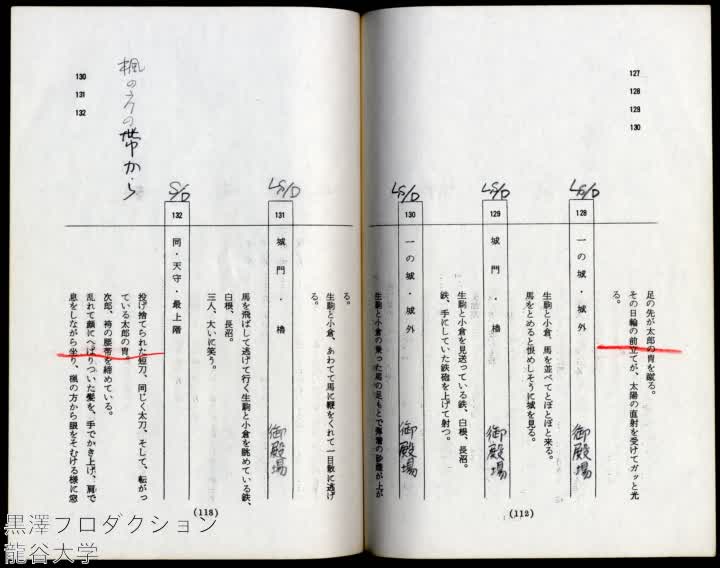 127
128
129
130
足の先が太郎の冑を蹴る。
その日輪の前立てが、太陽の直射を受けてガッと光
る。
L S/D
128
一の城・城外
御殿場
生駒と小倉、馬を並べてとぼとぼと来る。
馬をとめると恨めしそうに城を見る。
L S/D
129
城門・櫓
御殿場
生駒と小倉を見送っている鉄、白根、長沼。
鉄、手にしていた鉄砲を上げて射つ。
L S/D
130
一の城・城外
御殿場
生駒と小倉の乗った馬の足もとで弾着の砂煙が上が
(112)
130
131
132
楓の方の帯から
る。
生駒と小倉、あわてて馬に鞭をくれて一目散に逃げ
る。
L S/D
131
城門・櫓
御殿場
馬を飛ばして逃げて行く生駒と小倉を眺めている鉄、
白根、長沼。
三人、大いに笑う。
S/D
132
同・天守・最上階
投げ捨てられた短刀、同じく太刀、そして、転がっ
ている太郎の冑。
次郎、袴の腰帯を締めている。
乱れて顔にへばりついた髪を、手でかき上げ、肩で
息をしながら坐り、楓の方から眼をそむける様に窓
(113)
黒澤プロダクション
龍谷大学